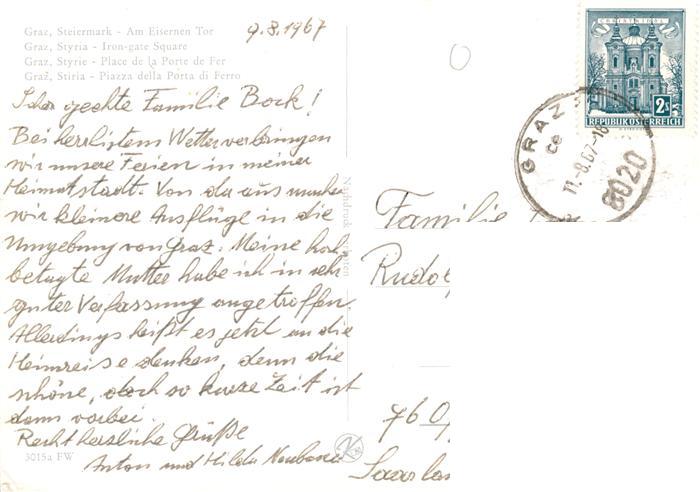 Graz, Steiermark - Am Eisernen Tor
Graz, Styria - Iron-gate Square
Graz, Styrie - Place de la Porte de Fer
Graž, Stiria - Piazza della Porta di Ferro
9.8.1967
Sehr geehrte Familie Bock!
Bei herrlichstem Wetter verbringen
wir unsere Ferien in meiner
Heimatstadt. Von da aus machen
wir kleinere Ausflüge in die
Umgebung von Graz. Meine hoch
betagte Mutter habe ich in sehr
guter Verfassung angetroffen.
Allerdings heißt es jetzt an die
Heimreise denken, denn die
schöne, doch so kurze Zeit ist
dann vorbei.
Recht herzliche Grüße
Anton und Hilda
3015a FW
Nachdruck
CHRISTKINDL
2S
REPUBLIK ÖSTERREICH
GRAZ
11.-8.67-18
8020
Familie
Rudo